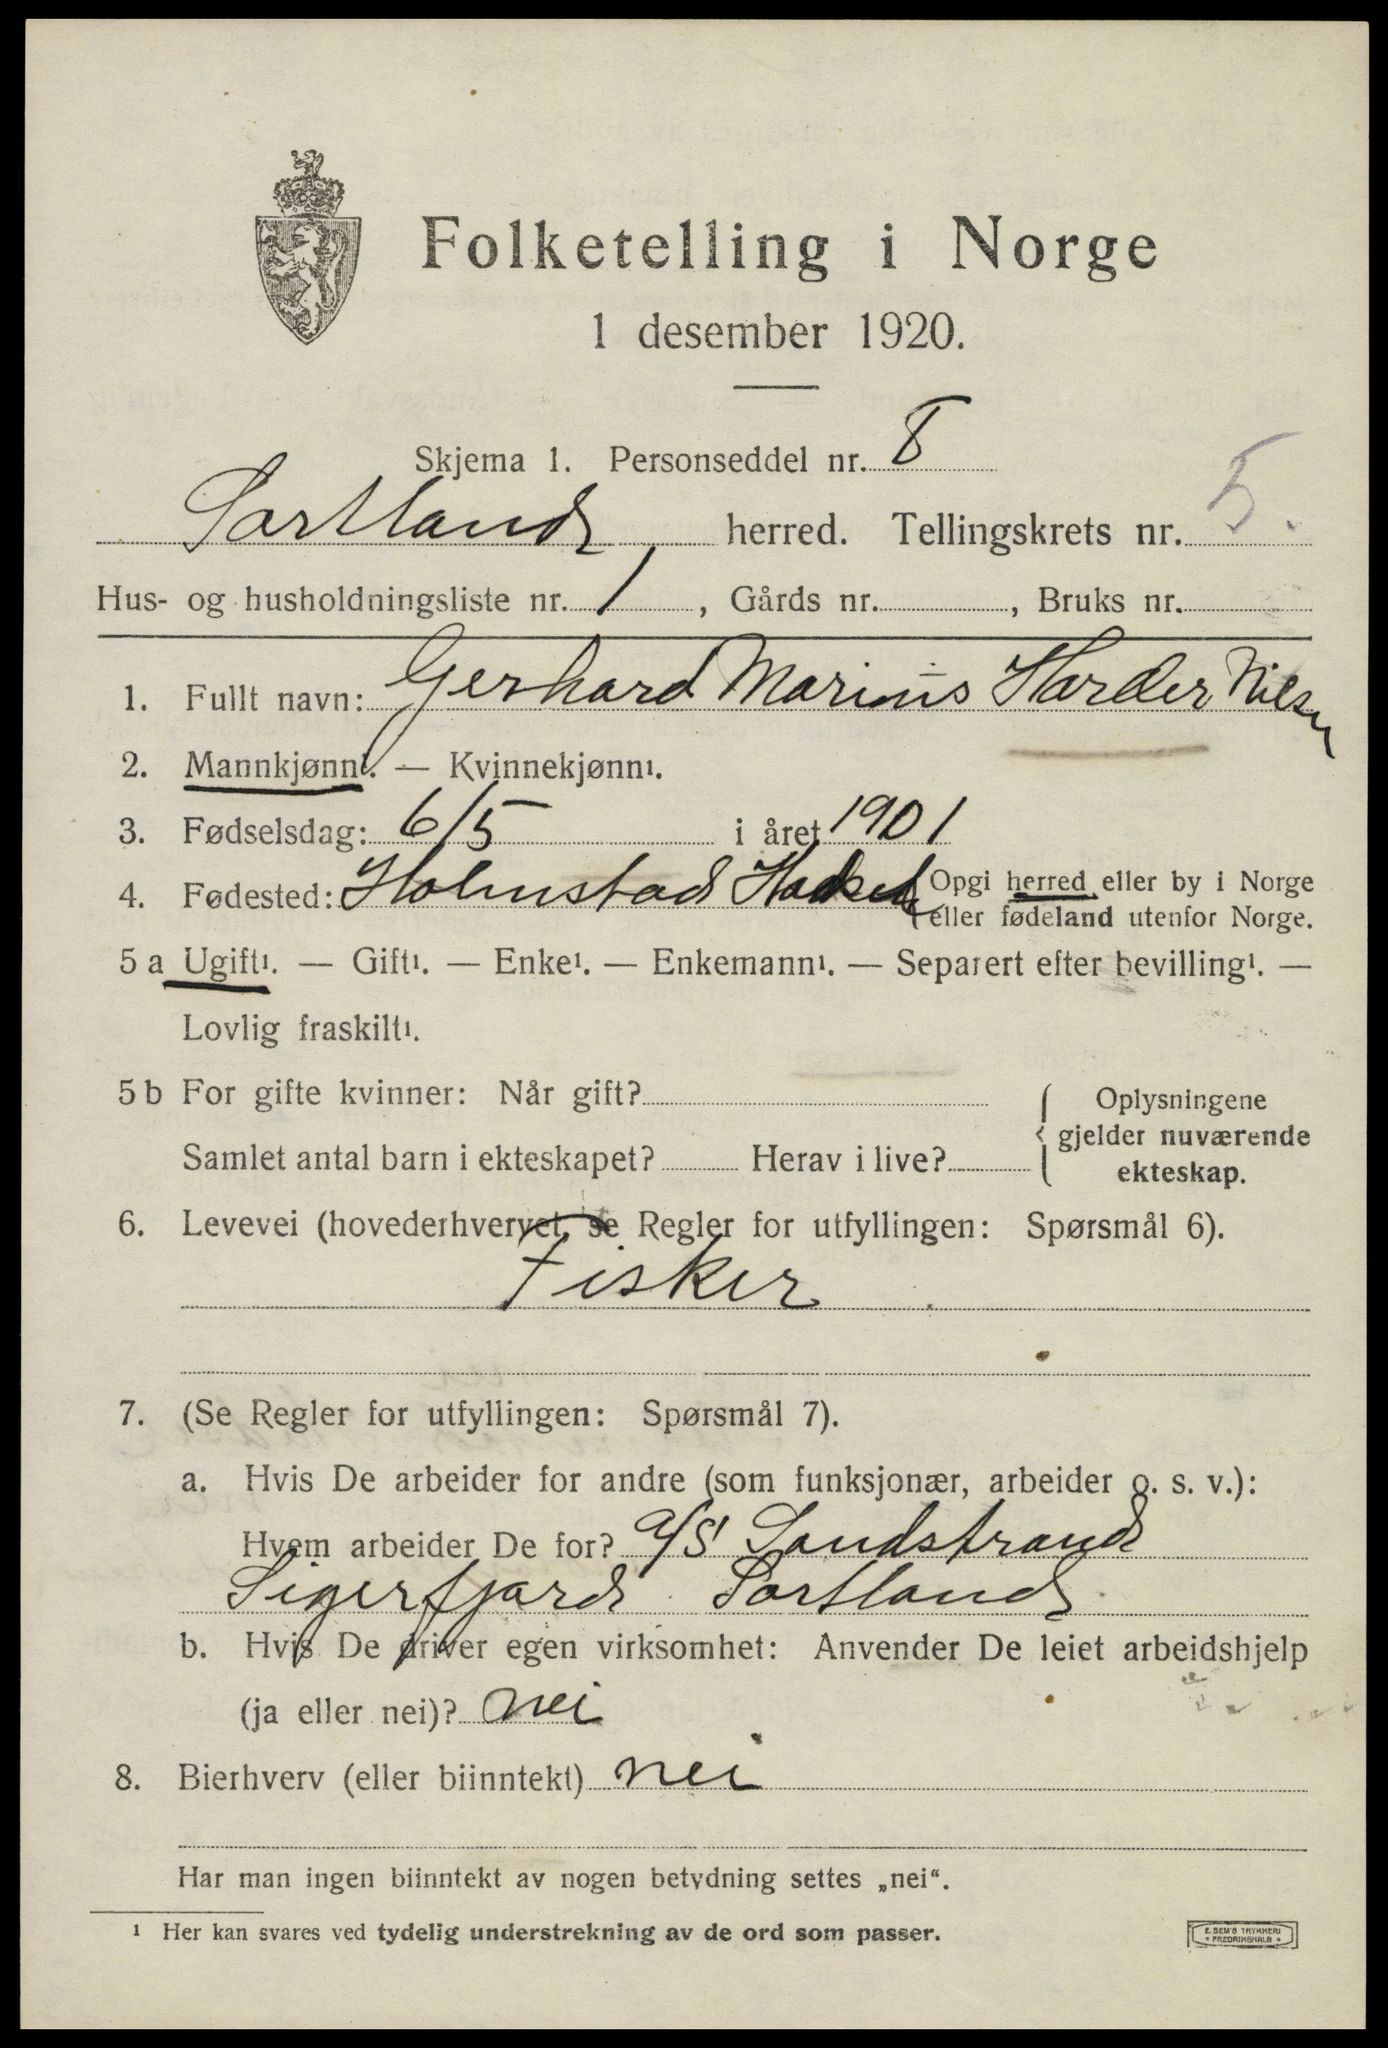 Folketelling i Norge
1 desember 1920.
Skjema 1. Personseddel nr. 8
Sortland herred. Tellingskrets nr. 5.
Hus- og husholdningsliste nr. 1, Gårds nr. , Bruks nr.
1. Fullt navn: Gerhard Marius Harder Nilsen
2. Mannkjønn¹. — Kvinnekjønn¹.
3. Fødselsdag: 6/5 i året 1901
4. Fødested: Holmstad Hadsel { Opgi herred eller by i Norge
eller fødeland utenfor Norge.
5 a Ugift¹. — Gift¹. — Enke¹. — Enkemann¹. — Separert efter bevilling¹. —
Lovlig fraskilt¹.
5 b For gifte kvinner: Når gift? { Oplysningene
gjelder nuværende
Samlet antal barn i ekteskapet? Herav i live?
ekteskap.
6. Levevei (hovederhvervet, se Regler for utfyllingen: Spørsmål 6).
Fisker
7. (Se Regler for utfyllingen: Spørsmål 7).
a. Hvis De arbeider for andre (som funksjonær, arbeider o. s. v.):
Hvem arbeider De for? a/s Sandstrand
Sigerfjord Sortland
b. Hvis De driver egen virksomhet: Anvender De leiet arbeidshjelp
(ja eller nei)? nei
8. Bierhverv (eller biinntekt) nei
Har man ingen biinntekt av nogen betydning settes „nei“.
¹ Her kan svares ved tydelig understrekning av de ord som passer.
E. SEM'S TRYKKERI
* FREDRIKSHALD *